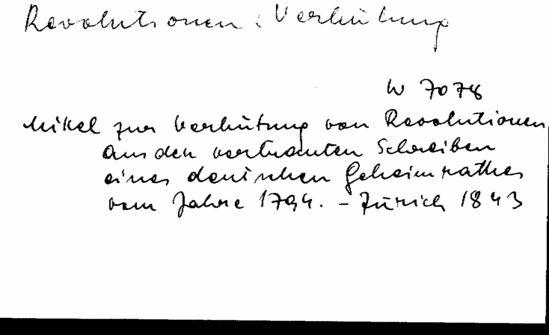 Revolutionen : Verhütung
W 7078
Mittel zur Verhütung von Revolutionen
aus den vertrauten Schreiben
eines dänischen Geheimrathes
vom Jahre 1794. – Zürich 1843